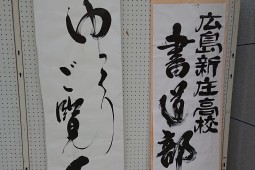 広島新庄高校
書道部
ゆっくり
ご覧下